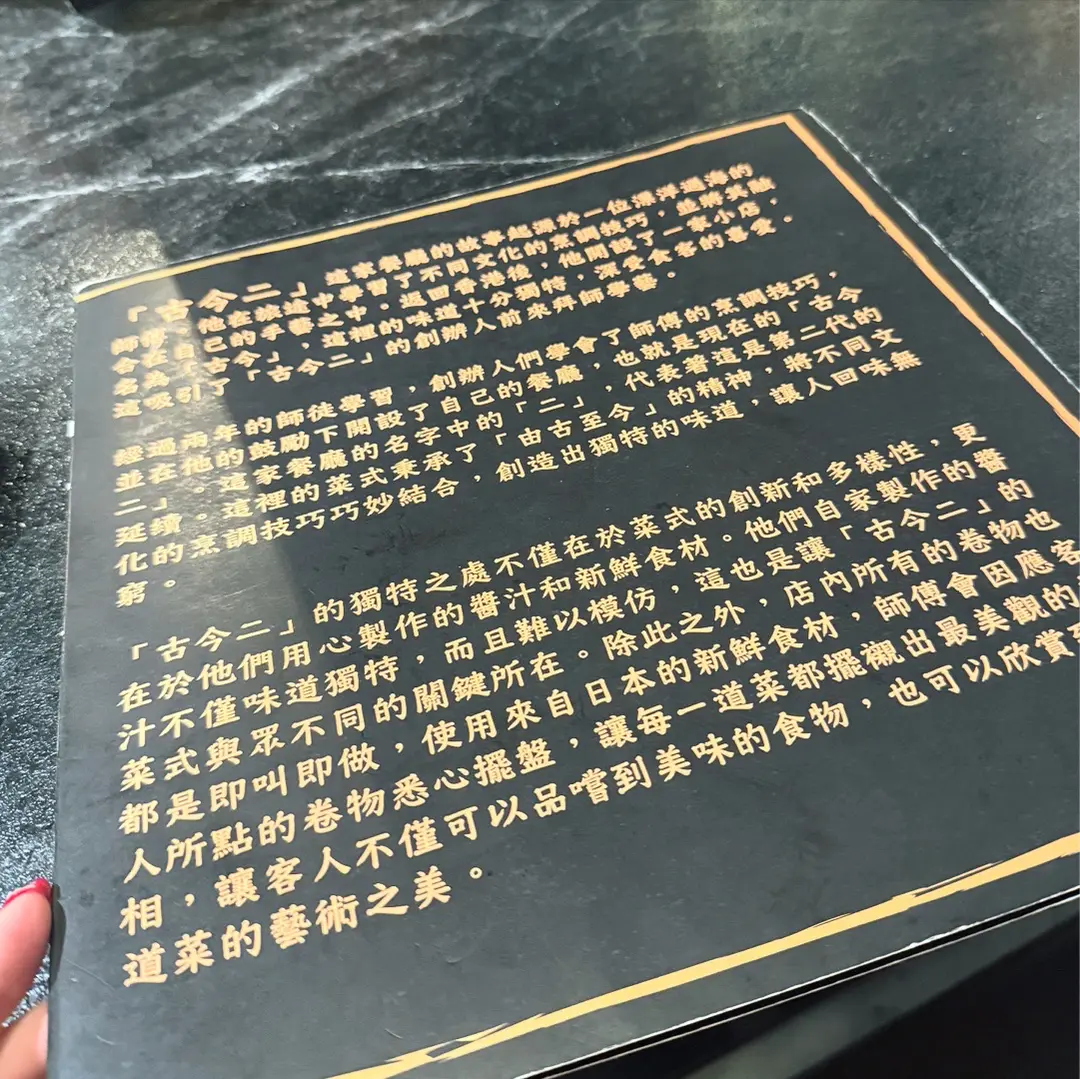 「古今二」這家餐廳的故事起源於一位漂洋過海的
師傅，他在旅途中學習了不同文化的烹調技巧，並將其融
合在自己的手藝之中。返回香港後，他開設了一家小店，
名為「古今」，這裡的味道十分獨特，深受食客的喜愛。
這吸引了「古今二」的創辦人前來拜師學藝。
經過兩年的師徒學習，創辦人們學會了師傅的烹調技巧，
並在他的鼓勵下開設了自己的餐廳，也就是現在的「古今
二」。這家餐廳的名字中的「二」，代表著這是第二代的
延續。這裡的菜式秉承了「由古至今」的精神，將不同文
化的烹調技巧巧妙結合，創造出獨特的味道，讓人回味無
窮。
「古今二」的獨特之處不僅在於菜式的創新和多樣性，更
在於他們用心製作的醬汁和新鮮食材。他們自家製作的醬
汁不僅味道獨特，而且難以模仿，這也是讓「古今二」的
菜式與眾不同的關鍵所在。除此之外，店內所有的卷物也
都是即叫即做，使用來自日本的新鮮食材，師傅會因應客
人所點的卷物悉心擺盤，讓每一道菜都擺襯出最美觀的
相，讓客人不僅可以品嚐到美味的食物，也可以欣賞
道菜的藝術之美。